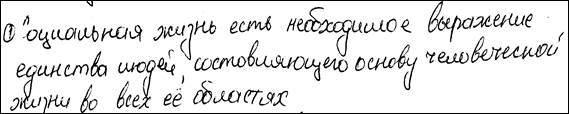 ① "оциальная жизнь есть необходимое выражение
единства людей, состовляющего основу человеческой
жизни во всех её областях